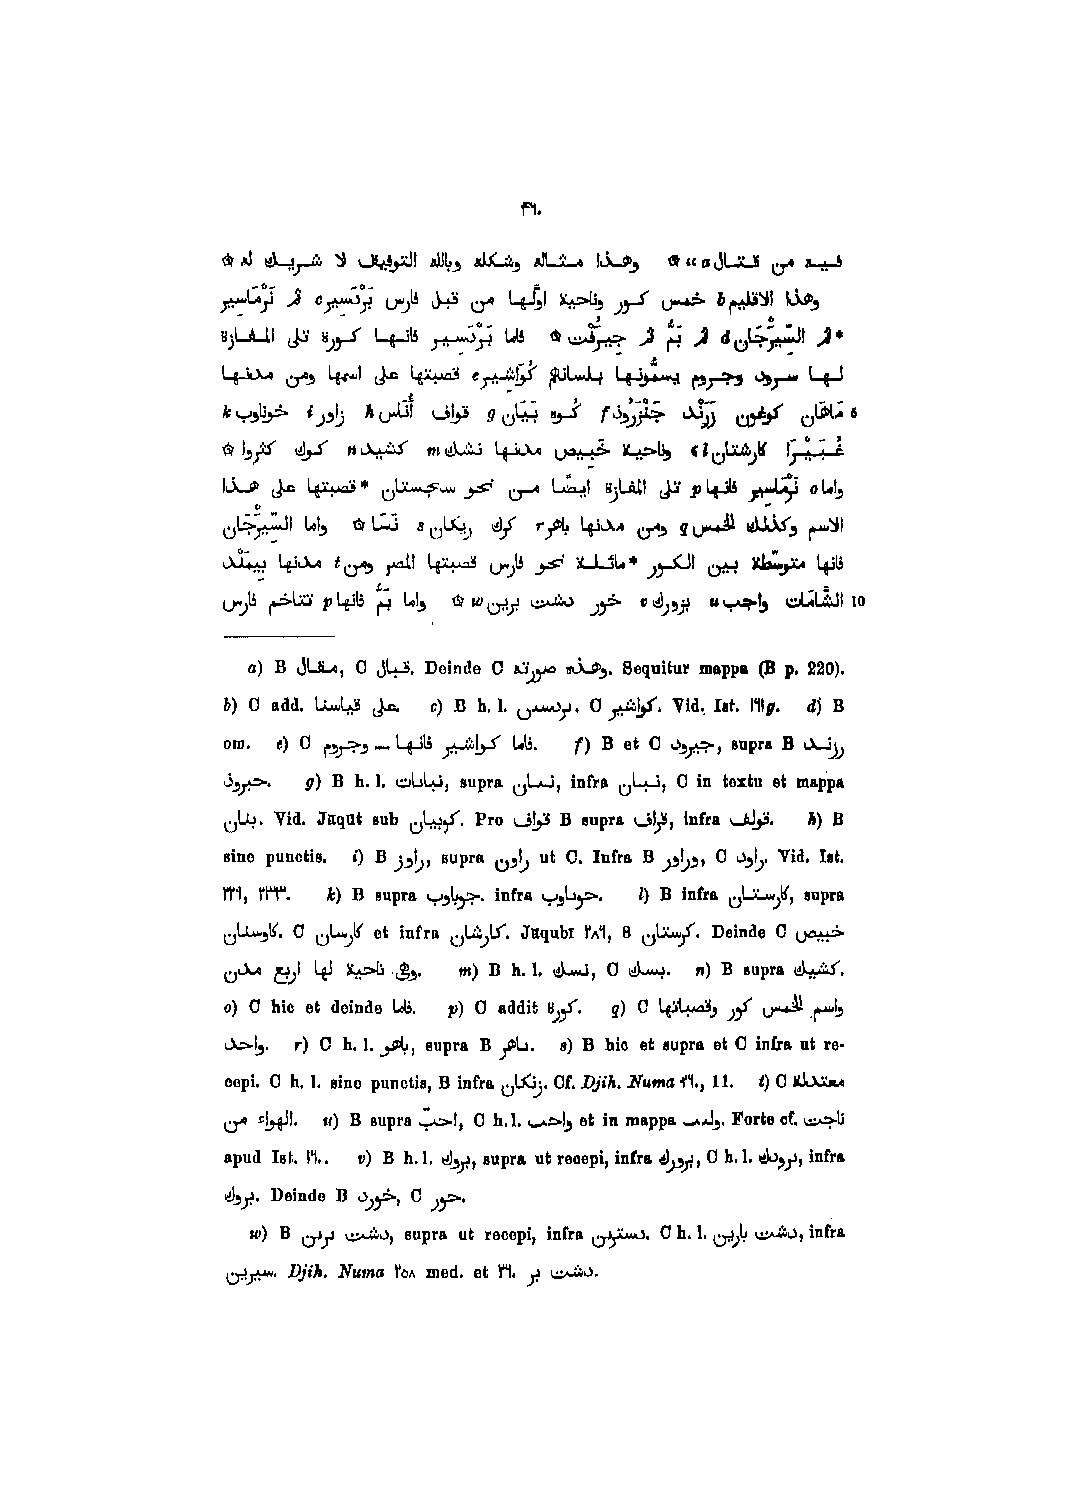 ۴٦٠
فيه من قتال a „ ۞ وهذا مثاله وشكله وبالله التوفيق لا شريك له ۞
وهذا الاقليم b خمس كور وناحية اوّلها من قبل فارس بَرْدَسير c ثم نَرْماسير
*ثم السِّيرَجَان d ثم بَمّ ثم جِيرُفْت ۞ فاما بَرْدَسير فانها كورة تلى المفازة
لها سرود وجروم يسمّونها بلسانهم كُوَاشِير e قصبتها على اسمها ومن مدنها
مَاهَان كوغون زَرَنْد جَنْزَرُوذ f كُوه بَيَان g قواف أُنَاس h زاور i خوناوب k 5
غُبَيْرَا كارشتان l ، وناحية خَبِيص مدنها نشك m كشيد n كوك كثروا ۞
واما o نَرْمَاسير فانها p تلى المفازة ايضًا من نحو سجستان *قصبتها على هذا
الاسم وكذلك الخمس q ومن مدنها باهر r كرك ريكان s نَسَا ۞ واما السِّيرَجَان
فانها متوسّطة بين الكور *مائلة نحو فارس قصبتها المصر ومن t مدنها بِيمَنْد
الشَّامَات واجب u بزورك v خور دشت برين w ۞ واما بَمّ فانها p تتاخم فارس 10
a) B مقال, C قبال. Deinde C وهذه صورته. Sequitur mappa (B p. 220).
b) C add. على قياسنا. c) B h. l. بردسى. C كواشير. Vid. Ist. ١٦١g. d) B
om. e) C فاما كواشير فانها — وجروم. f) B et C جيرود, supra B رزند
حبروذ. g) B h. l. نبانات, supra نمان, infra نبيان, C in textu et mappa
بنان. Vid. Jaqut sub كوبيان. Pro قواف B supra قراف, infra قولف. h) B
sine punctis. i) B راوز, supra راون ut C. Infra B وراور, C راود. Vid. Ist.
٢٣١, ٢٣٣. k) B supra جوباوب. infra حوناوب. l) B infra كارستان, supra
كاوستان. C كارسان et infra كارشان. Jaqubi ٢٨٦, 8 كرستان. Deinde C خبيص
وهى ناحية لها اربع مدن. m) B h. l. نسك, C بسك. n) B supra كشيك.
o) C hic et deinde فاما. p) C addit كورة. q) C واسم الخمس كور وقصباتها
واحد. r) C h. l. باهو, supra B ناهر. s) B hic et supra et C infra ut re-
cepi. C h. l. sine punctis, B infra زنكان. Cf. Djih. Numa ٢٦٠, 11. t) C معتدلة
الهواء من. u) B supra احبّ, C h. l. واحب et in mappa ولب. Forte cf. ناجت
apud Ist. ١٦٠. v) B h. l. بروك, supra ut recepi, infra برورك, C h. l. برودك, infra
بروك. Deinde B خورد, C حور.
w) B دشت برىن, supra ut recepi, infra دستبرين. C h. l. دشت بارين, infra
سيرين. Djih. Numa ٢٥٨ med. et ٢٦٠ دشت بر.